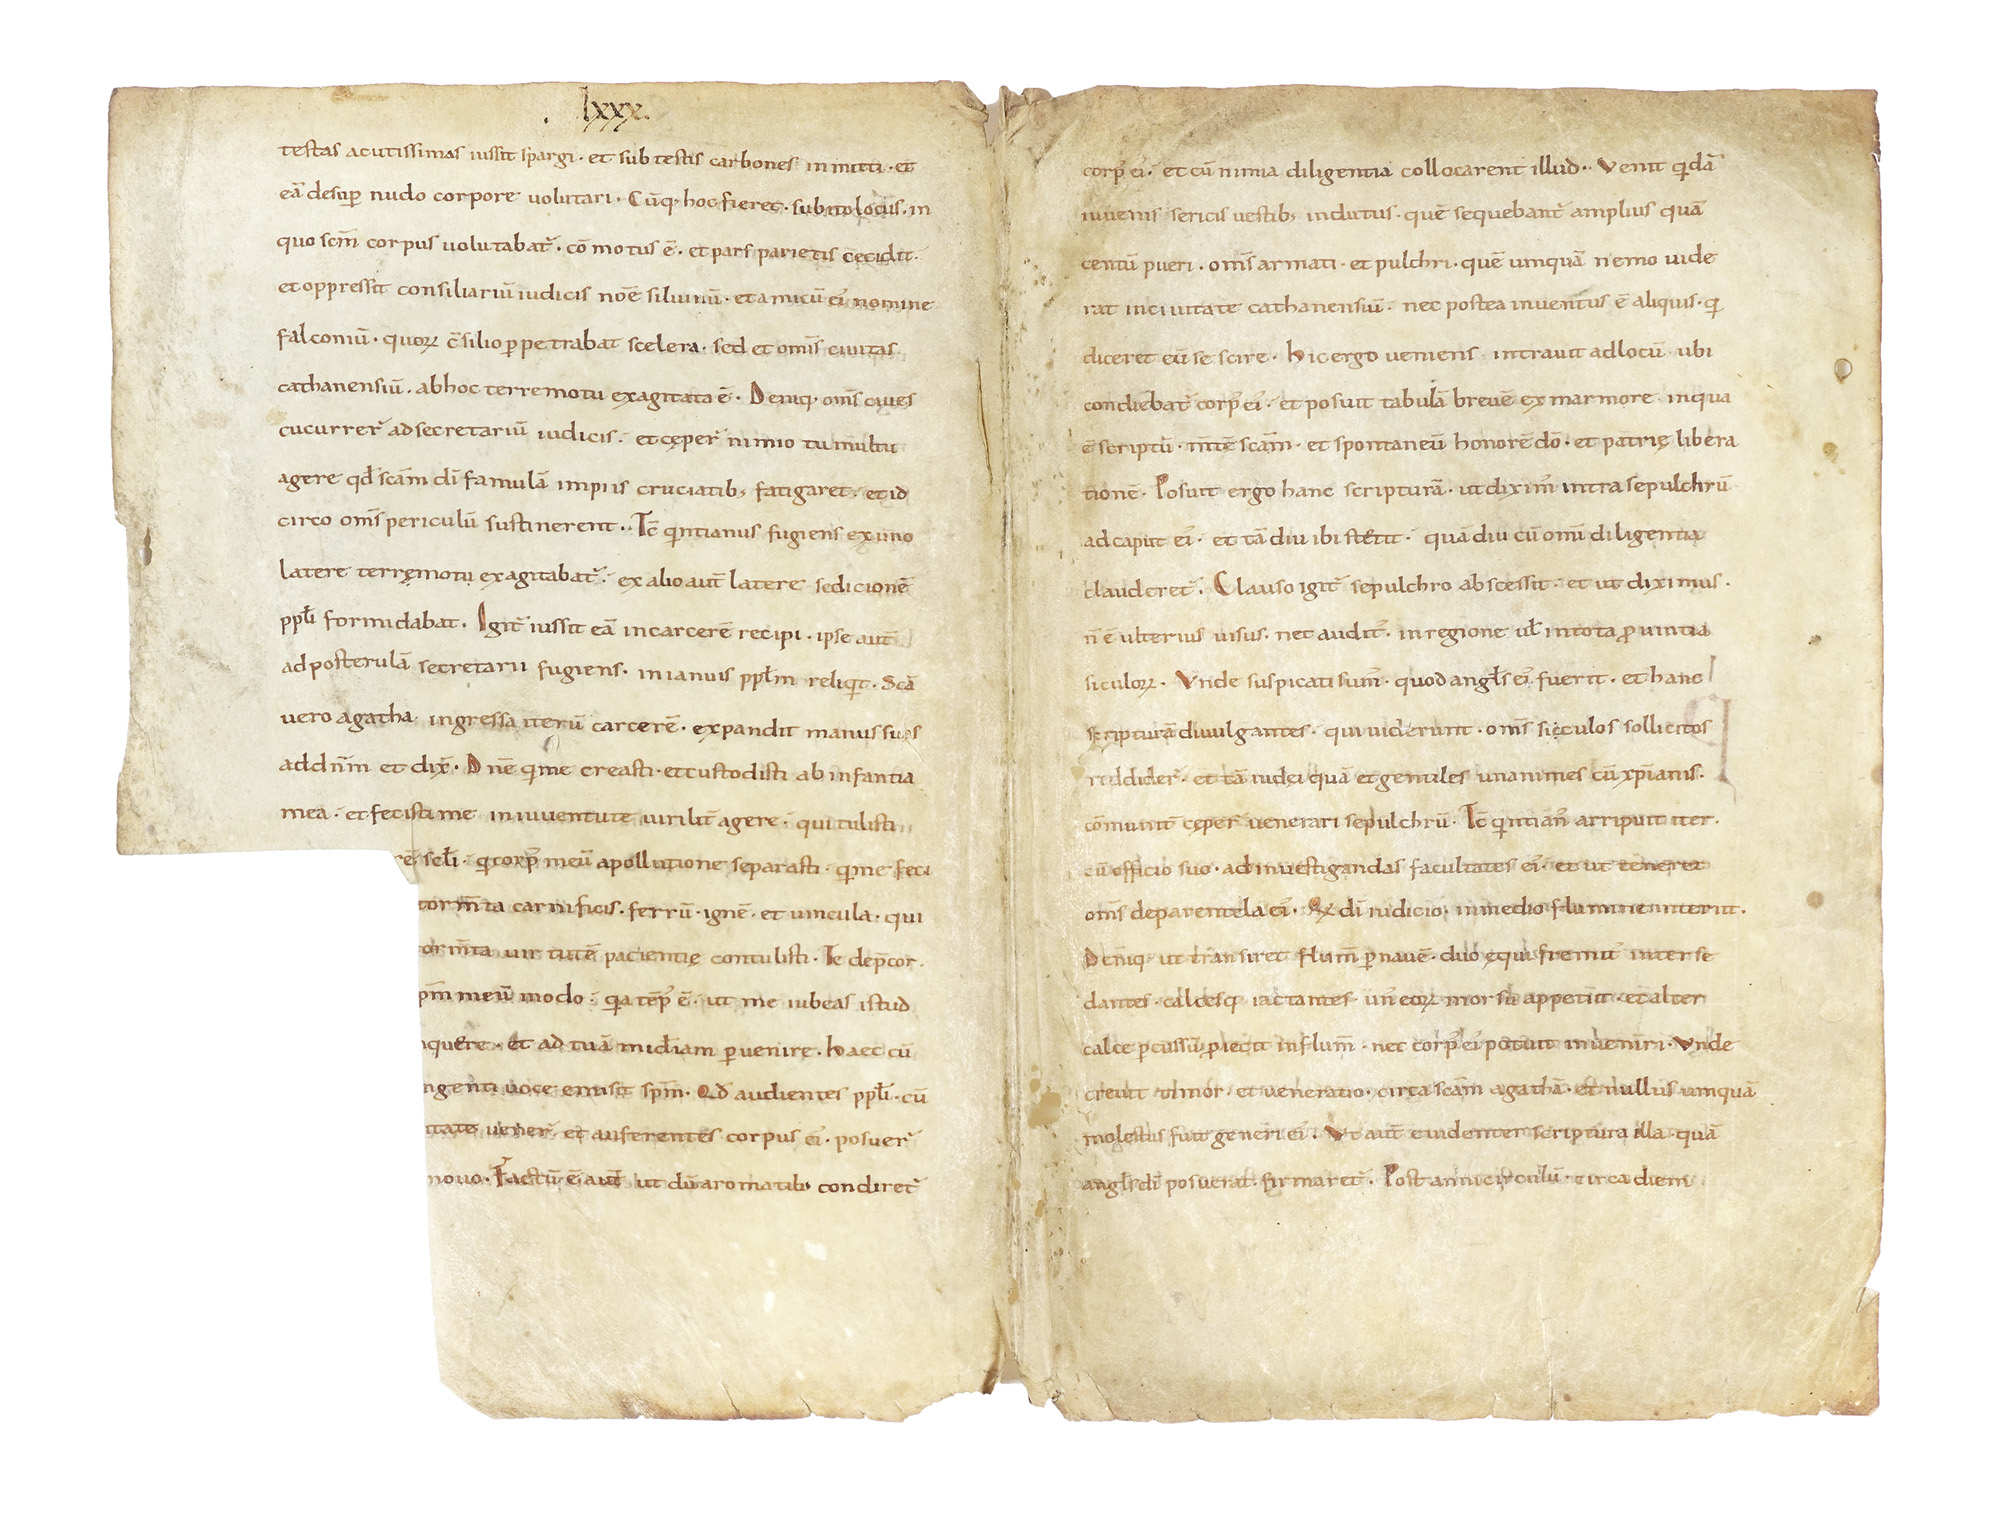 lxxx.
testas acutissimas iussit spargi · et sub testis carbones in mitti · et
eā desup̄ nudo corpore volutari · Cūq; hoc fieret · subito locus · in
quo scm̄ corpus volutabat᷑ · cō motus ē · et pars parietis cecidit ·
et oppressit consiliariū iudicis noē siluinū · et amicū ei᷒ nomine
falconiū · quoꝝ c̄silio ꝑpetrabat scelera · sed et om̄s ciuitas
cathanensiū · ab hoc terremotu exagitata ē · Deniq; om̄s ciues
cucurrer᷑ ad secretariū iudicis · et cęper᷑ nimio tumultu
agere qd̄ scām dī famulā impiis cruciatib; fatigaret · et id
circo om̄s periculū sustinerent · Tc̄ q̄ntianus fugiens ex uno
latere terręmotu exagitabat᷑ · ex alio aut̄ latere sedicionē
ppl̄i formidabat · Igit᷑ iussit eā in carcerē recipi · ipse aut̄
ad posterulā secretarii fugiens · in ianuis ppl̄m reliqͥt · Scā
vero agatha ingressa iterū carcerē · expandit manus suas
ad dn̄m et dix̄ · Dnē qͥ me creasti · et custodisti ab infantia
mea · et fecisti me in iuventute uirilit᷑ agere · qui tulisti
rē sc̄li · qͥ corp᷒ meū a pollutione separasti · qͥ me feci
torm̄ta carnificis · ferrū · ignē · et uincula · qui
orm̄ta uirtutē pacientię contulisti · Te dep̄cor ·
pm̄ meū modo · qͥa tēp᷒ ē · ut me iubeas istud
nquere · et ad tuā mīdiam ꝑvenire · Haec cū
ngenti uoce emisit spm̄ · Qd̄ audientes ppl̄i · cū
itate vener᷑ · et auferentes corpus ei᷒ · posuer᷑
novo · Factū ē aut̄ ut dū aromatib; condiret᷑
corp᷒ ei᷒ · et cū nimia diligentia collocarent illud · Venit qͥdā
iuvenis sericis vestib; indutus · quē sequebant᷑ amplius quā
centū pueri · om̄s armati · et pulchri · quē umquā nemo uide
rat in ciuitate cathanensiū · nec postea inventus ē aliquis · qͥ
diceret eū se scire · Hic ergo veniens intrauit ad locū ubi
condiebat᷑ corp᷒ ei᷒ · et posuit tabulā brevē ex marmore in qua
ē scriptū · m̄tē scām · et spontaneū honorē dō · et patrię libera
tionē · Posuit ergo hanc scripturā · ut dixim᷒ intra sepulchrū
ad caput ei᷒ · et tā diu ibi stetit · quā diu cū omī diligentia
clauderet᷑ · Clauso igit᷑ sepulchro abscessit · et ut diximus ·
n̄ ē ulterius uisus · nec audit᷒ · in regione ul̄ in tota ꝓuintia
siculoꝝ · Vnde suspicati sum᷒ · quod angl̄s ei᷒ fuerit · et hanc
scripturā divulgantes · qui uiderunt · om̄s siculos sollicitos
reddider᷑ · et tā iudei quā et gentiles unanimes cū xp̄ianis ·
cōmunit᷑ cęper᷑ venerari sepulchrū · Tc̄ qͥntian᷒ arripuit iter ·
cū officio suo · ad investigandas facultates ei᷒ · et ut teneret
om̄s de parentela ei᷒ · Q dī iudicio · in medio flumine interiit ·
Deniq; ut transiret flum̄ ꝑ navē · duo ęqui fremit᷒ inter se
dantes · calcesq; iactantes · un᷒ eoꝝ morsu appetiit · et alter
calce ꝑcussū ꝓiecit in flum̄ · nec corp᷒ ei᷒ potuit inveniri · Vnde
creuit timor · et veneratio · circa scām agathā · et nullus umquā
molestus fuit generi ei᷒ · Vt aut̄ euidenter scriptura illa quā
angl̄s dī posuerat · firmaret᷑ · Post anni circulū · circa diem